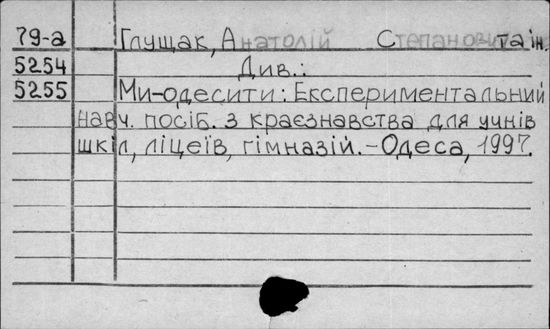 79-а Глущак, Анатолій Степанович та ін.
5254 Див.:
5255 Ми-одесити: Експериментальний
навч. посіб. з краєзнавства для учнів
шкіл, ліцеїв, гімназій.-Одеса, 1997.